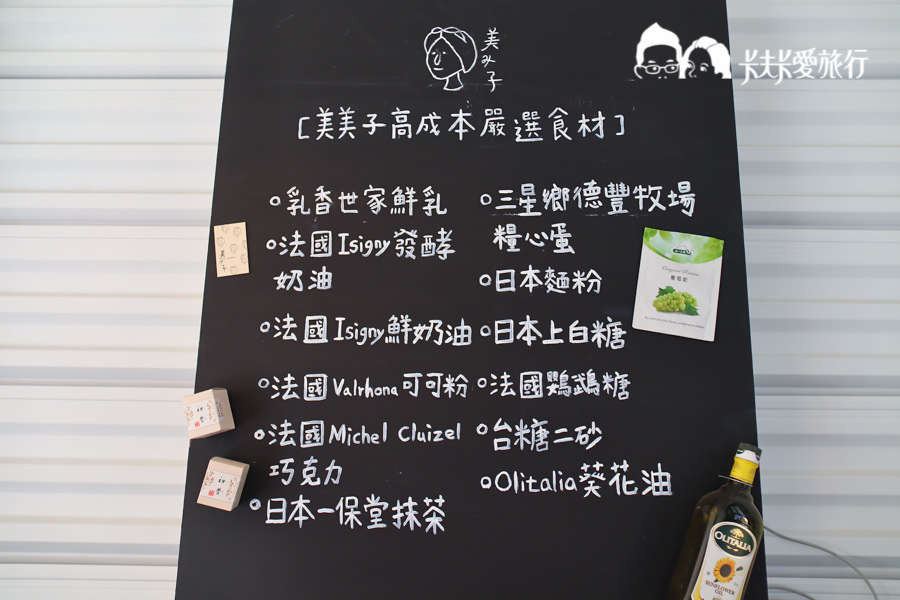 美み子
卡夫卡愛旅行
[美美子高成本嚴選食材]
乳香世家鮮乳
法國Isigny發酵
奶油
法國Isigny鮮奶油
法國Valrhona可可粉
法國Michel Cluizel
巧克力
日本一保堂抹茶
三星鄉德豐牧場
糧心蛋
日本麵粉
日本上白糖
法國鸚鵡糖
台糖二砂
Olitalia葵花油
美み子
Original Raisins
葡萄乾
OLITALIA
SUNFLOWER
OIL